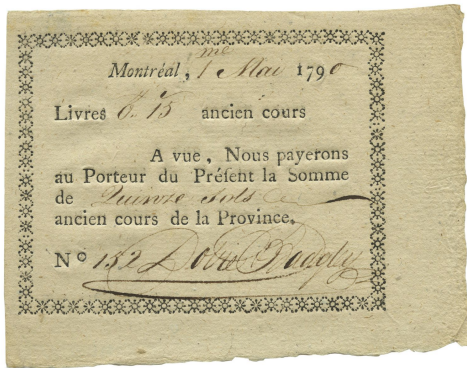 Montréal, 1me Mai 1790
Livres 0.. 15 ancien cours
A vue, Nous payerons
au Porteur du Préſent la Somme
de Quinze Sols
ancien cours de la Province.
No 152 Dobie Badgley